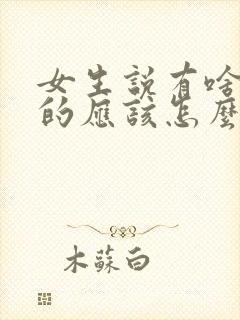 女生說有啥
的應該怎麼
木蘇白